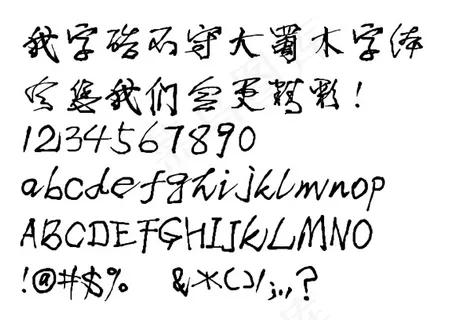 字守大蜀木字体
您我们会更精彩!
1234567890
abcdefghijklmnop
ABCDEFGHIJKLMNO
!@#$% &*()/ ?